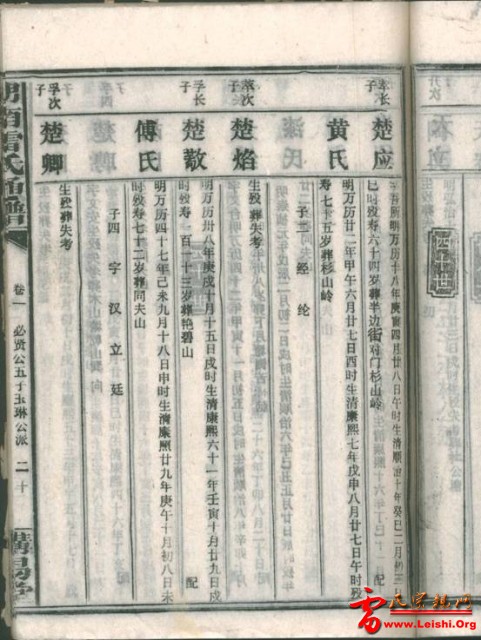 萃长子
楚应
字吾所明万历十八年庚寅四月廿八日午时生清顺治十年癸巳二月初三日
巳时殁寿六十四岁葬半边街对门杉山岭
配
黄氏
明万历廿二年甲午六月廿七日酉时生清康熙七年戊申八月廿七日午时殁
寿七十五岁葬杉山岭
子二 经 纶
萃次子
楚焰
生殁葬失考
孚长子
楚敭
明万历卅八年庚戌十月十五日戌时生清康熙六十一年壬寅十月廿九日戌
时殁寿一百一十三岁葬艳碧山
配
傅氏
明万历四十七年己未九月十八日申时生清康熙廿九年庚午十月初八日未
时殁寿七十二岁葬同夫山
子四 字 汉 立 廷
孚次子
楚卿
生殁葬失考
卷一 必贤公五子玉琳公派 二十
雷氏宗亲网
www.Leishi.Org